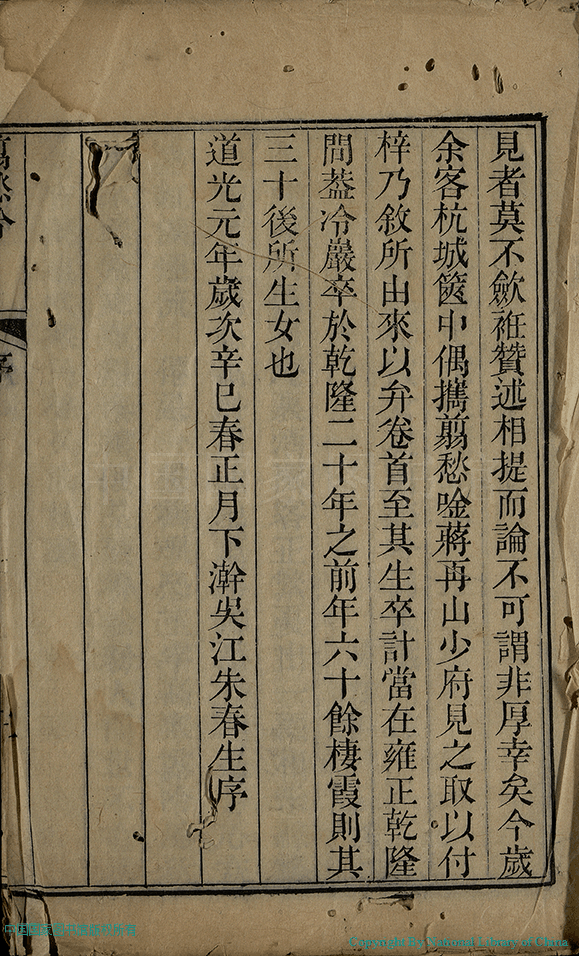 見者莫不歛袵贊述相提而論不可謂非厚幸矣今歲
余客杭城篋中偶攜翦愁唫蔣再山少府見之取以付
梓乃敘所由來以弁卷首至其生卒計當在雍正乾隆
間葢冷巖卒於乾隆二十年之前年六十餘棲霞則其
三十後所生女也
道光元年歲次辛巳春正月下澣吳江朱春生序
序
Copyright By National Library of China